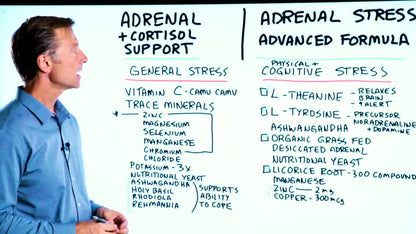 ADRENAL
+ CORTISOL
SUPPORT
GENERAL STRESS
VITAMIN C - CAMU CAMU
TRACE MINERALS
ZINC
MAGNESIUM
SELENIUM
MANGANESE
CHROMIUM
CHLORIDE
POTASSIUM - 3X
NUTRITIONAL YEAST
ASHWAGANDHA
HOLY BASIL
RHODIOLA
REHMANNIA
SUPPORTS
ABILITY
TO COPE
ADRENAL STRESS
ADVANCED FORMULA
PHYSICAL +
COGNITIVE STRESS
L-THEANINE - RELAXES
BRAIN
+ ALERT
L-TYROSINE - PRECURSOR
NORADRENALINE
+ DOPAMINE
ASHWANGANDHA
ORGANIC GRASS FED
DESICCATED ADRENAL
NUTRITIONAL YEAST
LICORICE ROOT - 300 COMPOUND
MANGANESE
ZINC - 2mg
COPPER - 300mcg